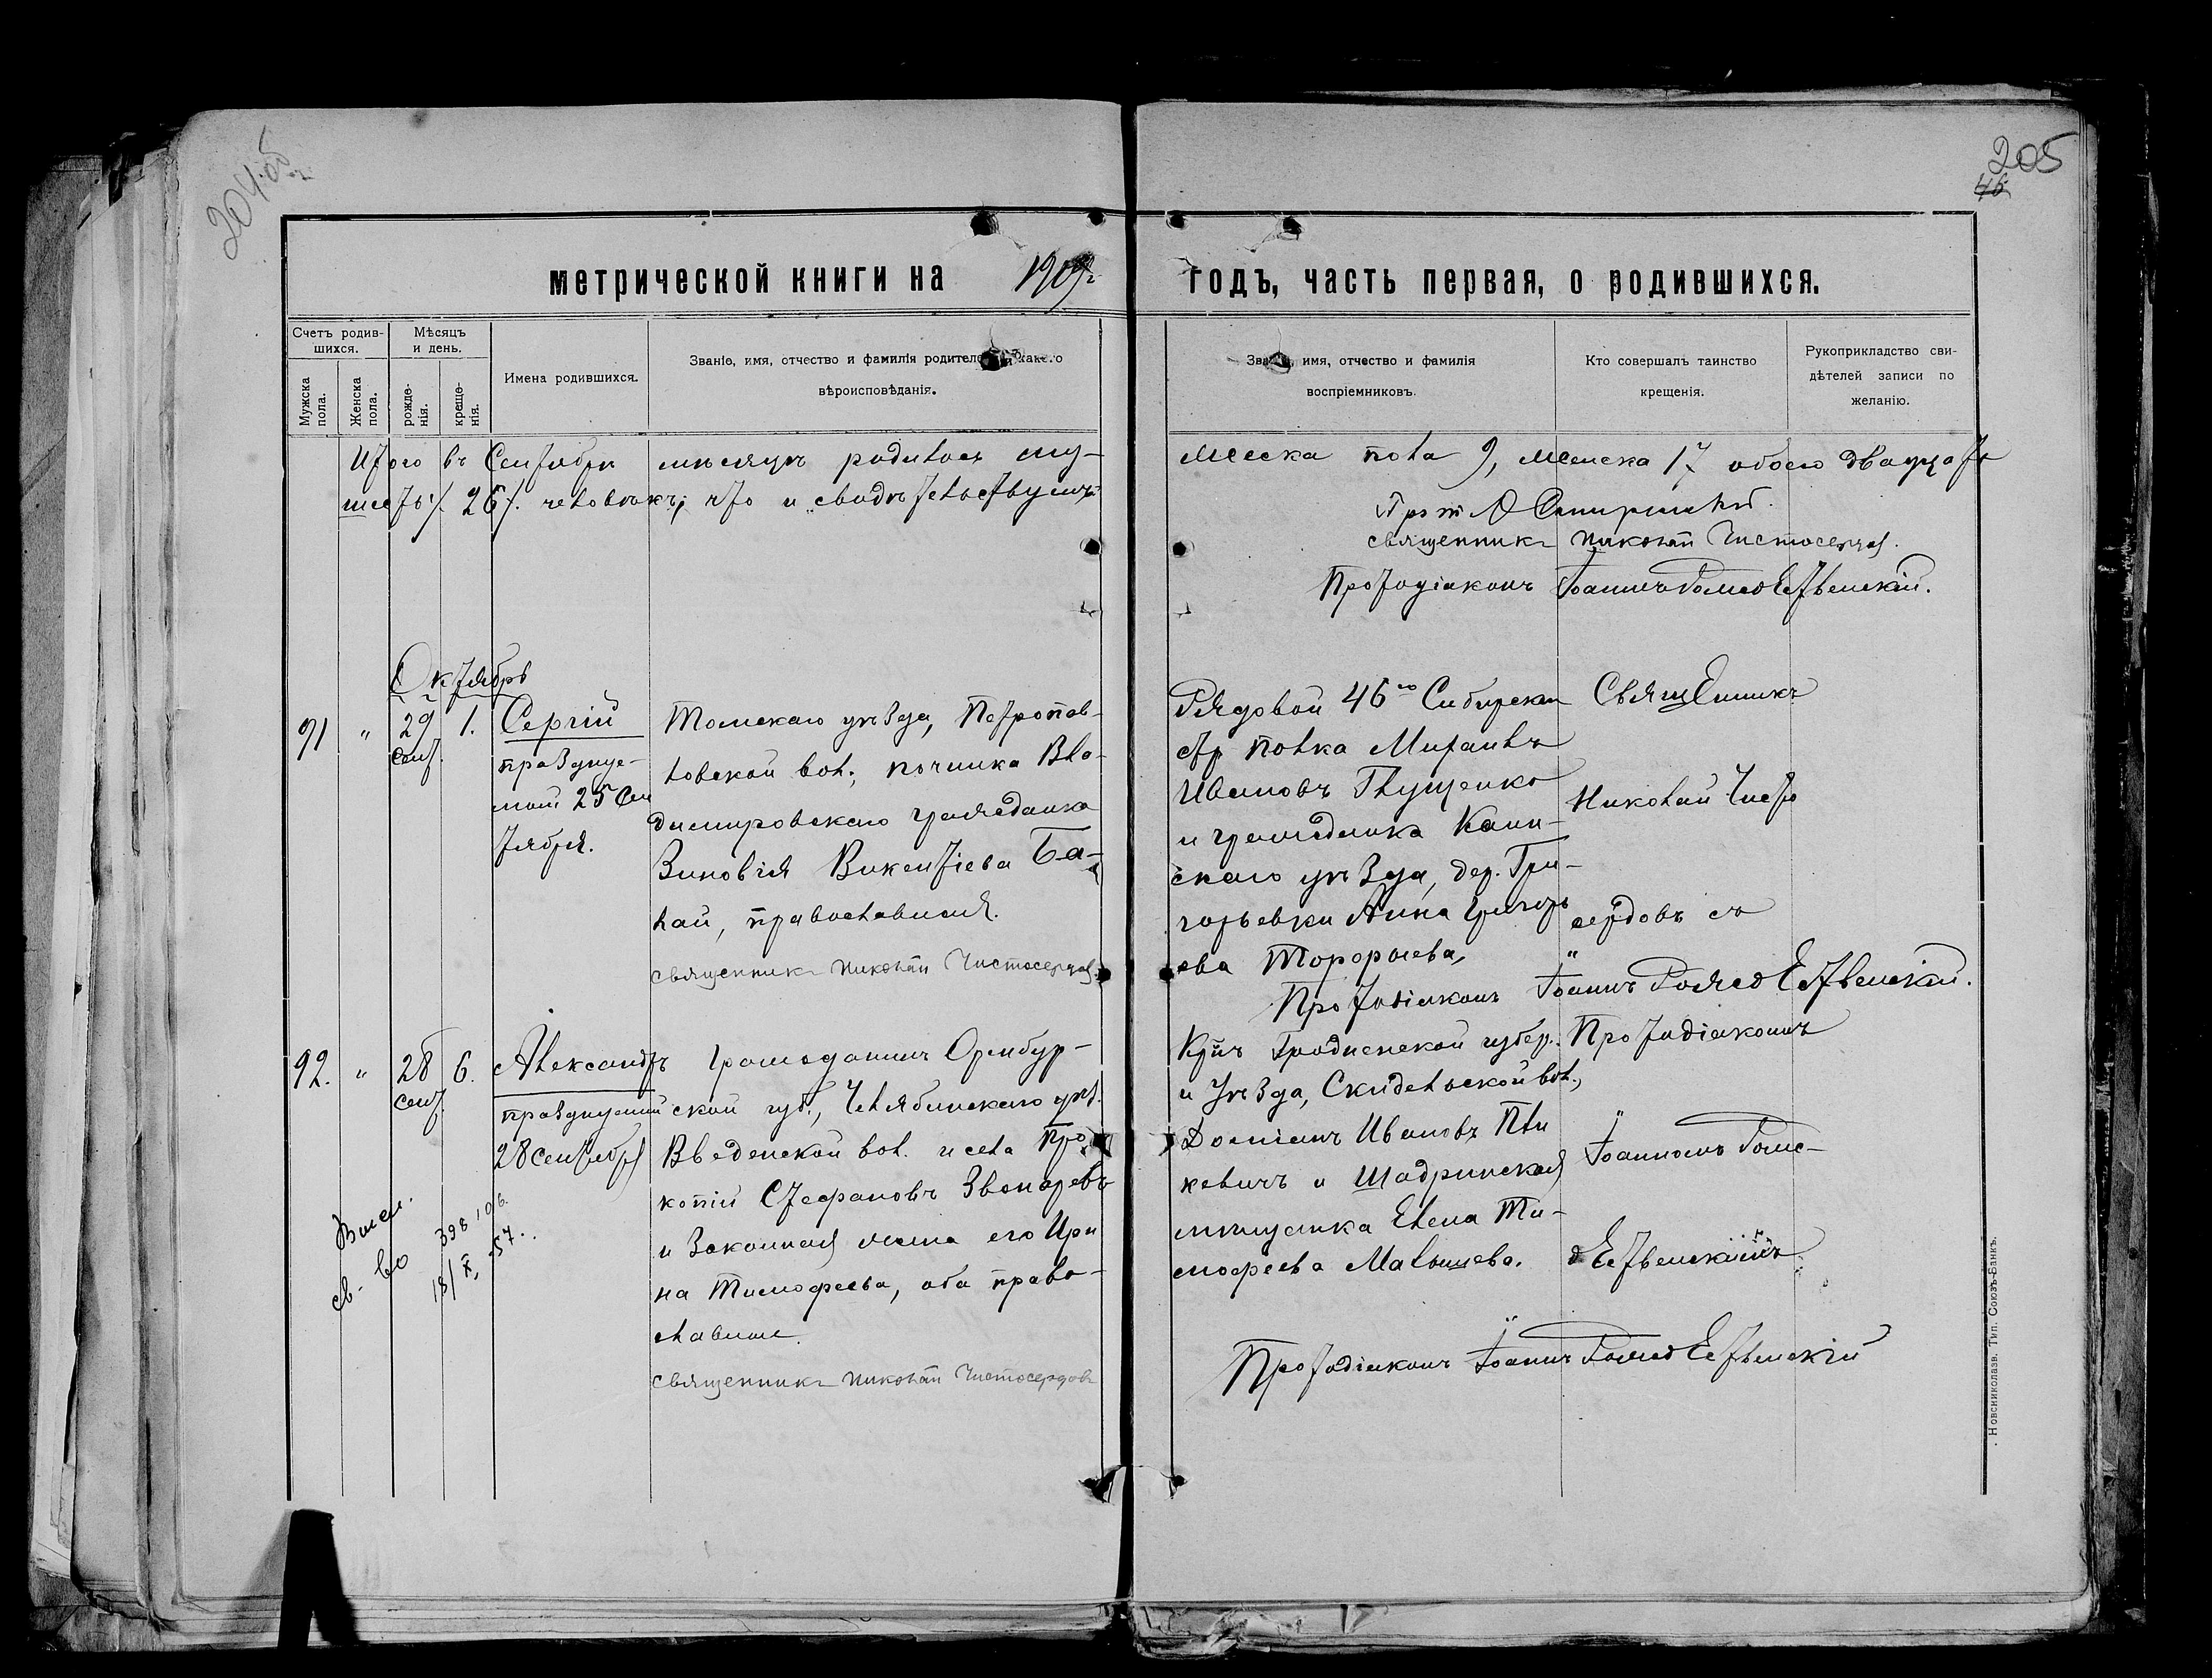 204 об.
205
46
метрической книги на 1909 г.
годъ, часть первая, о родившихся.
Счетъ родив-
шихся.
Мужска
пола.
Женска
пола.
Мѣсяцъ
и день.
рожде-
нія.
креще-
нія.
Имена родившихся.
Званіе, имя, отчество и фамилія
вѣроисповѣданія.
имя, отчество и фамилія
воспріемниковъ.
Кто совершалъ таинство
крещенія.
Рукоприкладство сви-
дѣтелей записи по
желанію.
Итого въ Сентябрѣ мѣсяцѣ родилось му-
жеска пола 9, женска 17 обоего двадцать
шесть /. 26 /. человѣкъ; что и свидѣтельствуемъ
священникъ Николай Чистосердов
Протодіаконъ Іоаннъ Рождественскій.
Октябрь
91 " 29 1. Сергій
сент.
празднуе-
мый 25 Сен
тября.
Томскаго уѣзда, Петропав-
ловской вол., починка Вла-
димировскаго гражданка
Зиновія Викентіева Ба-
лай, православная.
священникъ Николай Чистосердов
Рядовой 46го Сибирскаго
стр полка Михаилъ
Ивановъ Глущенко
и гражданка Каин-
скаго уѣзда, дер. Гри-
горьевки Анна Григорь
ева
Священникъ
Николай Чисто
сердовъ съ
Протодіаконъ Іоаннъ Рождественскій.
92. " 28 6. Александръ
сент.
празднуемый
28 сентября
Гражданинъ Оренбур-
ской губ., Челябинскаго уѣз.
Введенской вол. и села Про-
копій Стефановъ Звонаревъ
и Законная жена его Ири
на Тимофеева, оба право-
славные.
священникъ Николай Чистосердовъ
Крнъ Гродненской губер.
и Уѣзда, Скидельской вол.,
Доміанъ Ивановъ
кевичъ и Шадринская
мѣщанка Елена Ти-
мофеева Малышева.
Протодіакономъ
Іоанномъ Рож-
дественскимъ
Протодіаконъ Іоаннъ Рождественскій
св-во
398
18/X-57.
Новониколаев. Тип. Союзъ-Банкъ.